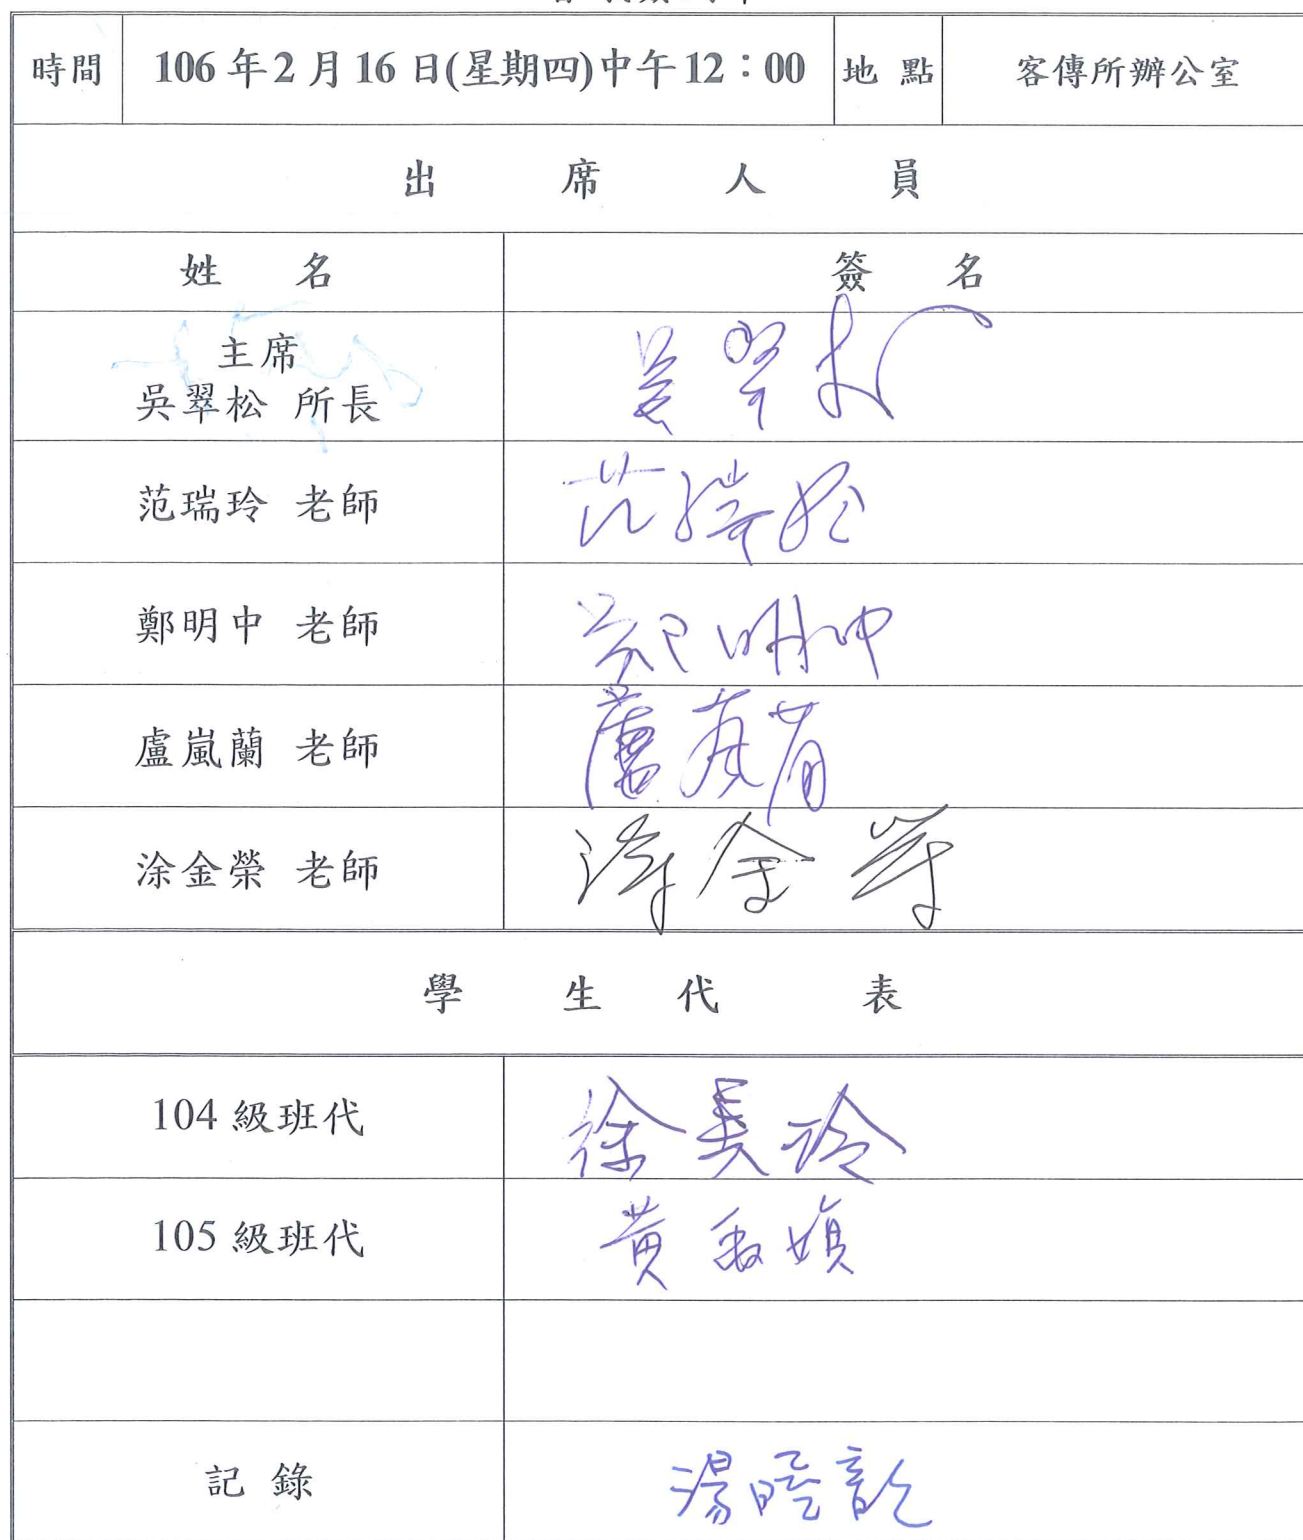 時間 106年2月16日(星期四)中午12:00 地點 客傳所辦公室
出席人員
姓名 簽名
主席
吳翠松 所長 吳翠松
范瑞玲 老師 范瑞玲
鄭明中 老師 鄭明中
盧嵐蘭 老師 盧嵐蘭
涂金榮 老師 涂金榮
學生代表
104級班代 徐美玲
105級班代 黃
記錄 湯